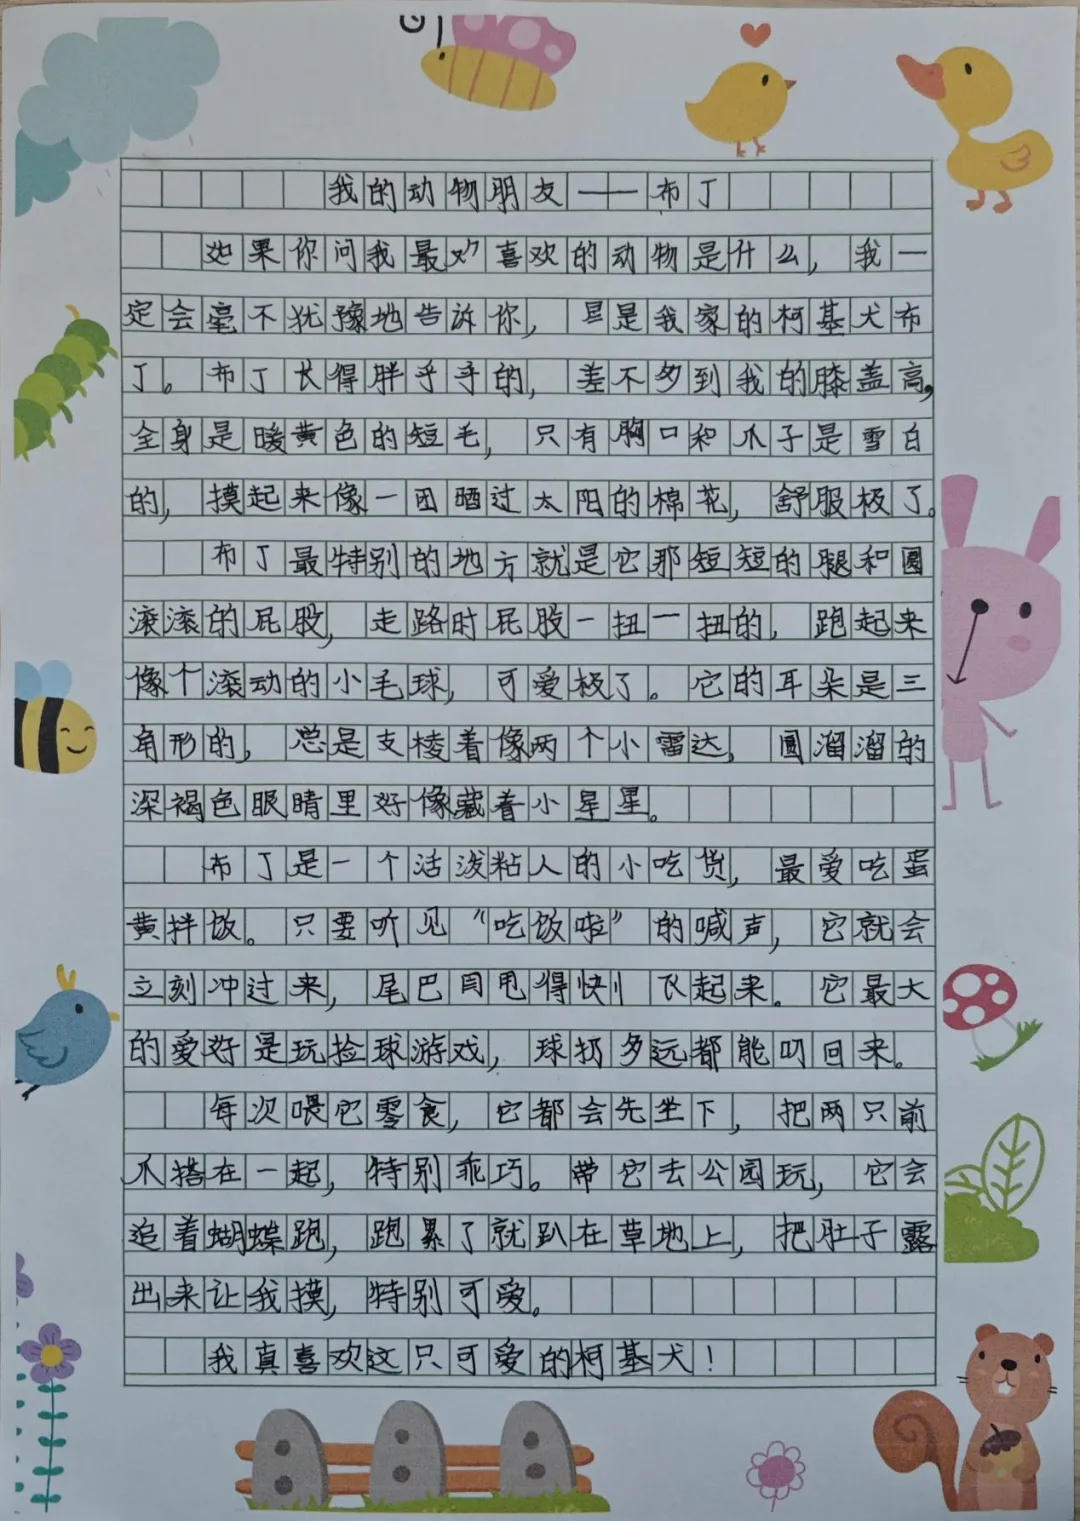 我的动物朋友——布丁
如果你问我最欢喜欢的动物是什么，我一
定会毫不犹豫地告诉你，是是我家的柯基犬布
丁。布丁长得胖乎乎的，差不多到我的膝盖高，
全身是暖黄色的短毛，只有胸口和爪子是雪白
的，摸起来像一团晒过太阳的棉花，舒服极了。
布丁最特别的地方就是它那短短的腿和圆
滚滚的屁股，走路时屁股一扭一扭的，跑起来
像个滚动的小毛球，可爱极了。它的耳朵是三
角形的，总是支棱着像两个小雷达，圆溜溜的
深褐色眼睛里好像藏着小星星。
布丁是一个活泼粘人的小吃货，最爱吃蛋
黄拌饭。只要听见“吃饭啦”的喊声，它就会
立刻冲过来，尾巴甩得快飞起来。它最大
的爱好是玩捡球游戏，球扔多远都能叼回来。
每次喂它零食，它都会先坐下，把两只前
爪搭在一起，特别乖巧。带它去公园玩，它会
追着蝴蝶跑，跑累了就趴在草地上，把肚子露
出来让我摸，特别可爱。
我真喜欢这只可爱的柯基犬！